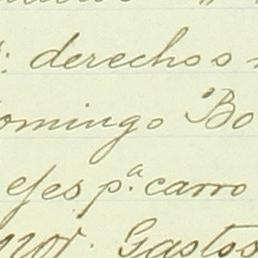 : derechos
omingo Bo
ejes p.ª carro
por. Gastos